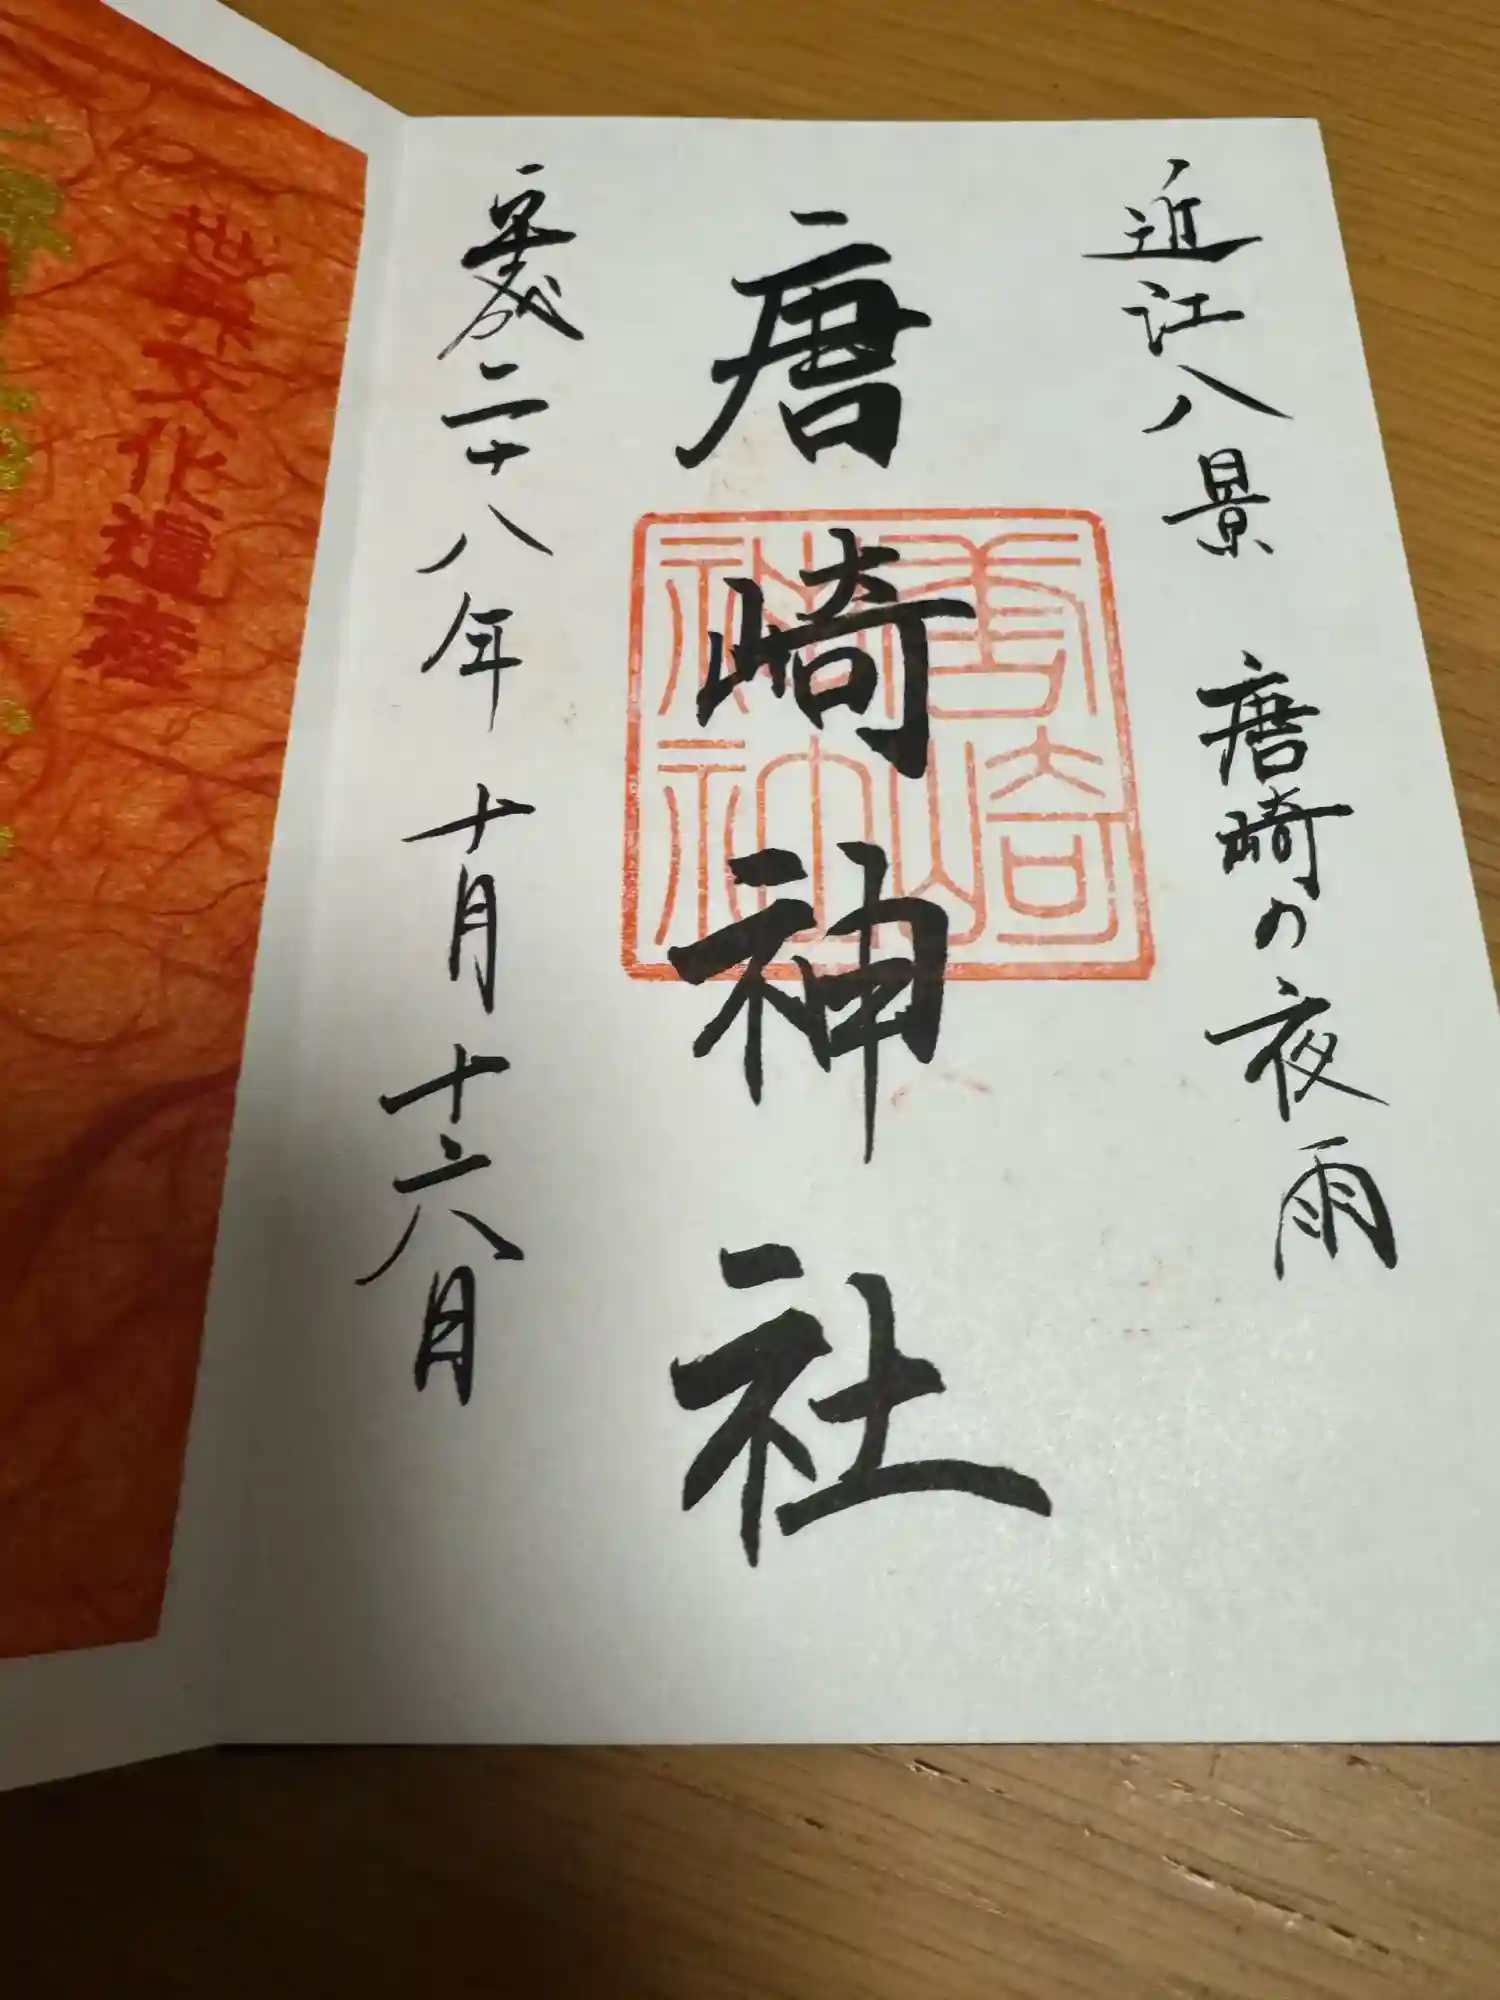 近江八景 唐崎の夜雨
唐崎神社
唐崎神社
平成二十八年 十月 十六日
世界文化遺産